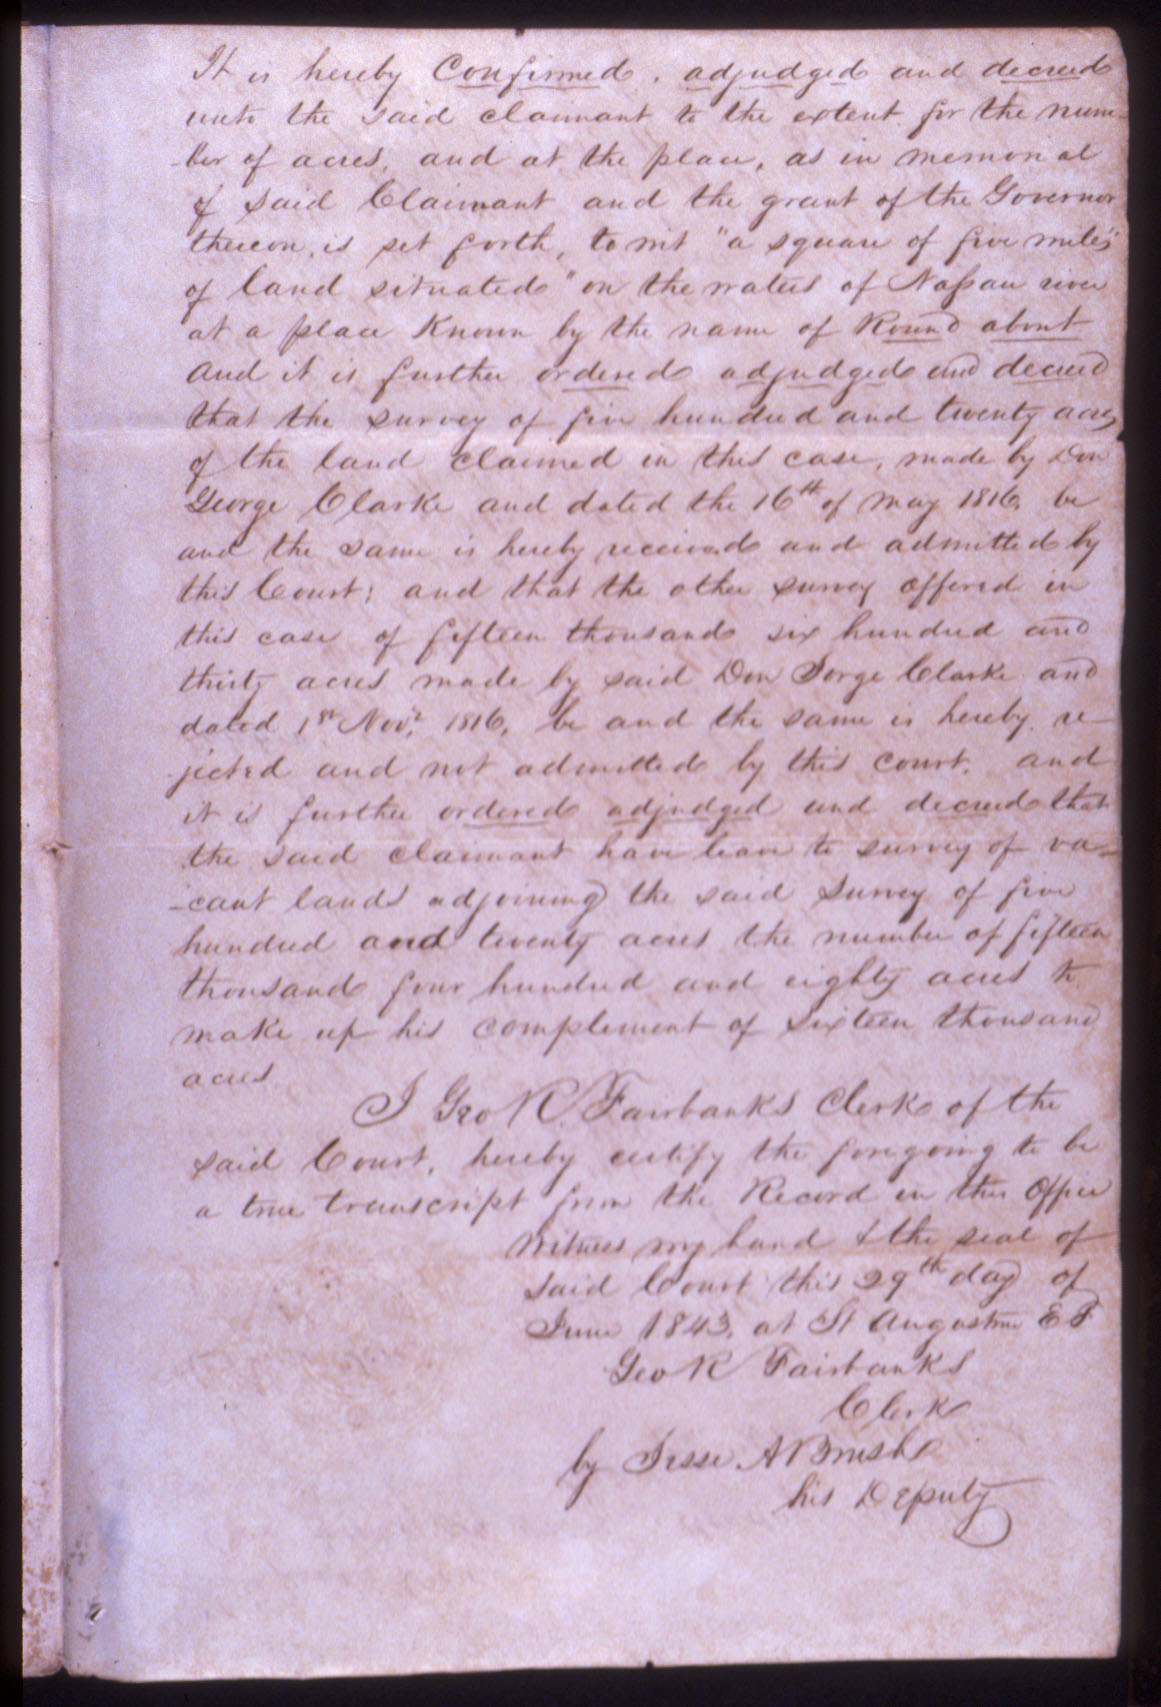 It is hereby Confirmed, adjudged and decreed
unto the said claimant to the extent for the num-
-ber of acres, and at the place, as in memorial
of said Claimant and the grant of the Governor
thereon, is set forth, to wit "a square of five miles"
of land situated "on the waters of Nassau river
at a place Known by the name of Round about
And it is further ordered adjudged and decreed
that the survey of five hundred and twenty acres
of the land claimed in this case, made by Don
George Clarke and dated the 16th of May 1816, be
and the same is hereby received and admitted by
this Court; and that the other survey offered in
this case of fifteen thousand six hundred and
thirty acres made by said Don Jorge Clarke and
dated 1st Novr. 1816, be and the same is hereby re-
-jected and not admitted by this court. and
it is further ordered adjudged and decreed that
the said claimant have leave to survey of va-
-cant lands adjoining the said Survey of five
hundred and twenty acres the number of fifteen
thousand four hundred and eighty acres to
make up his complement of sixteen thousand
acres
I Geo R. Fairbanks Clerk of the
said Court, hereby certify the foregoing to be
a true transcript from the Record in this Office
Witness my hand & the seal of
said Court this 29th day of
June 1843, at St Augustine E F
Geo R Fairbanks
Clerk
by Jesse A Brush
his Deputy